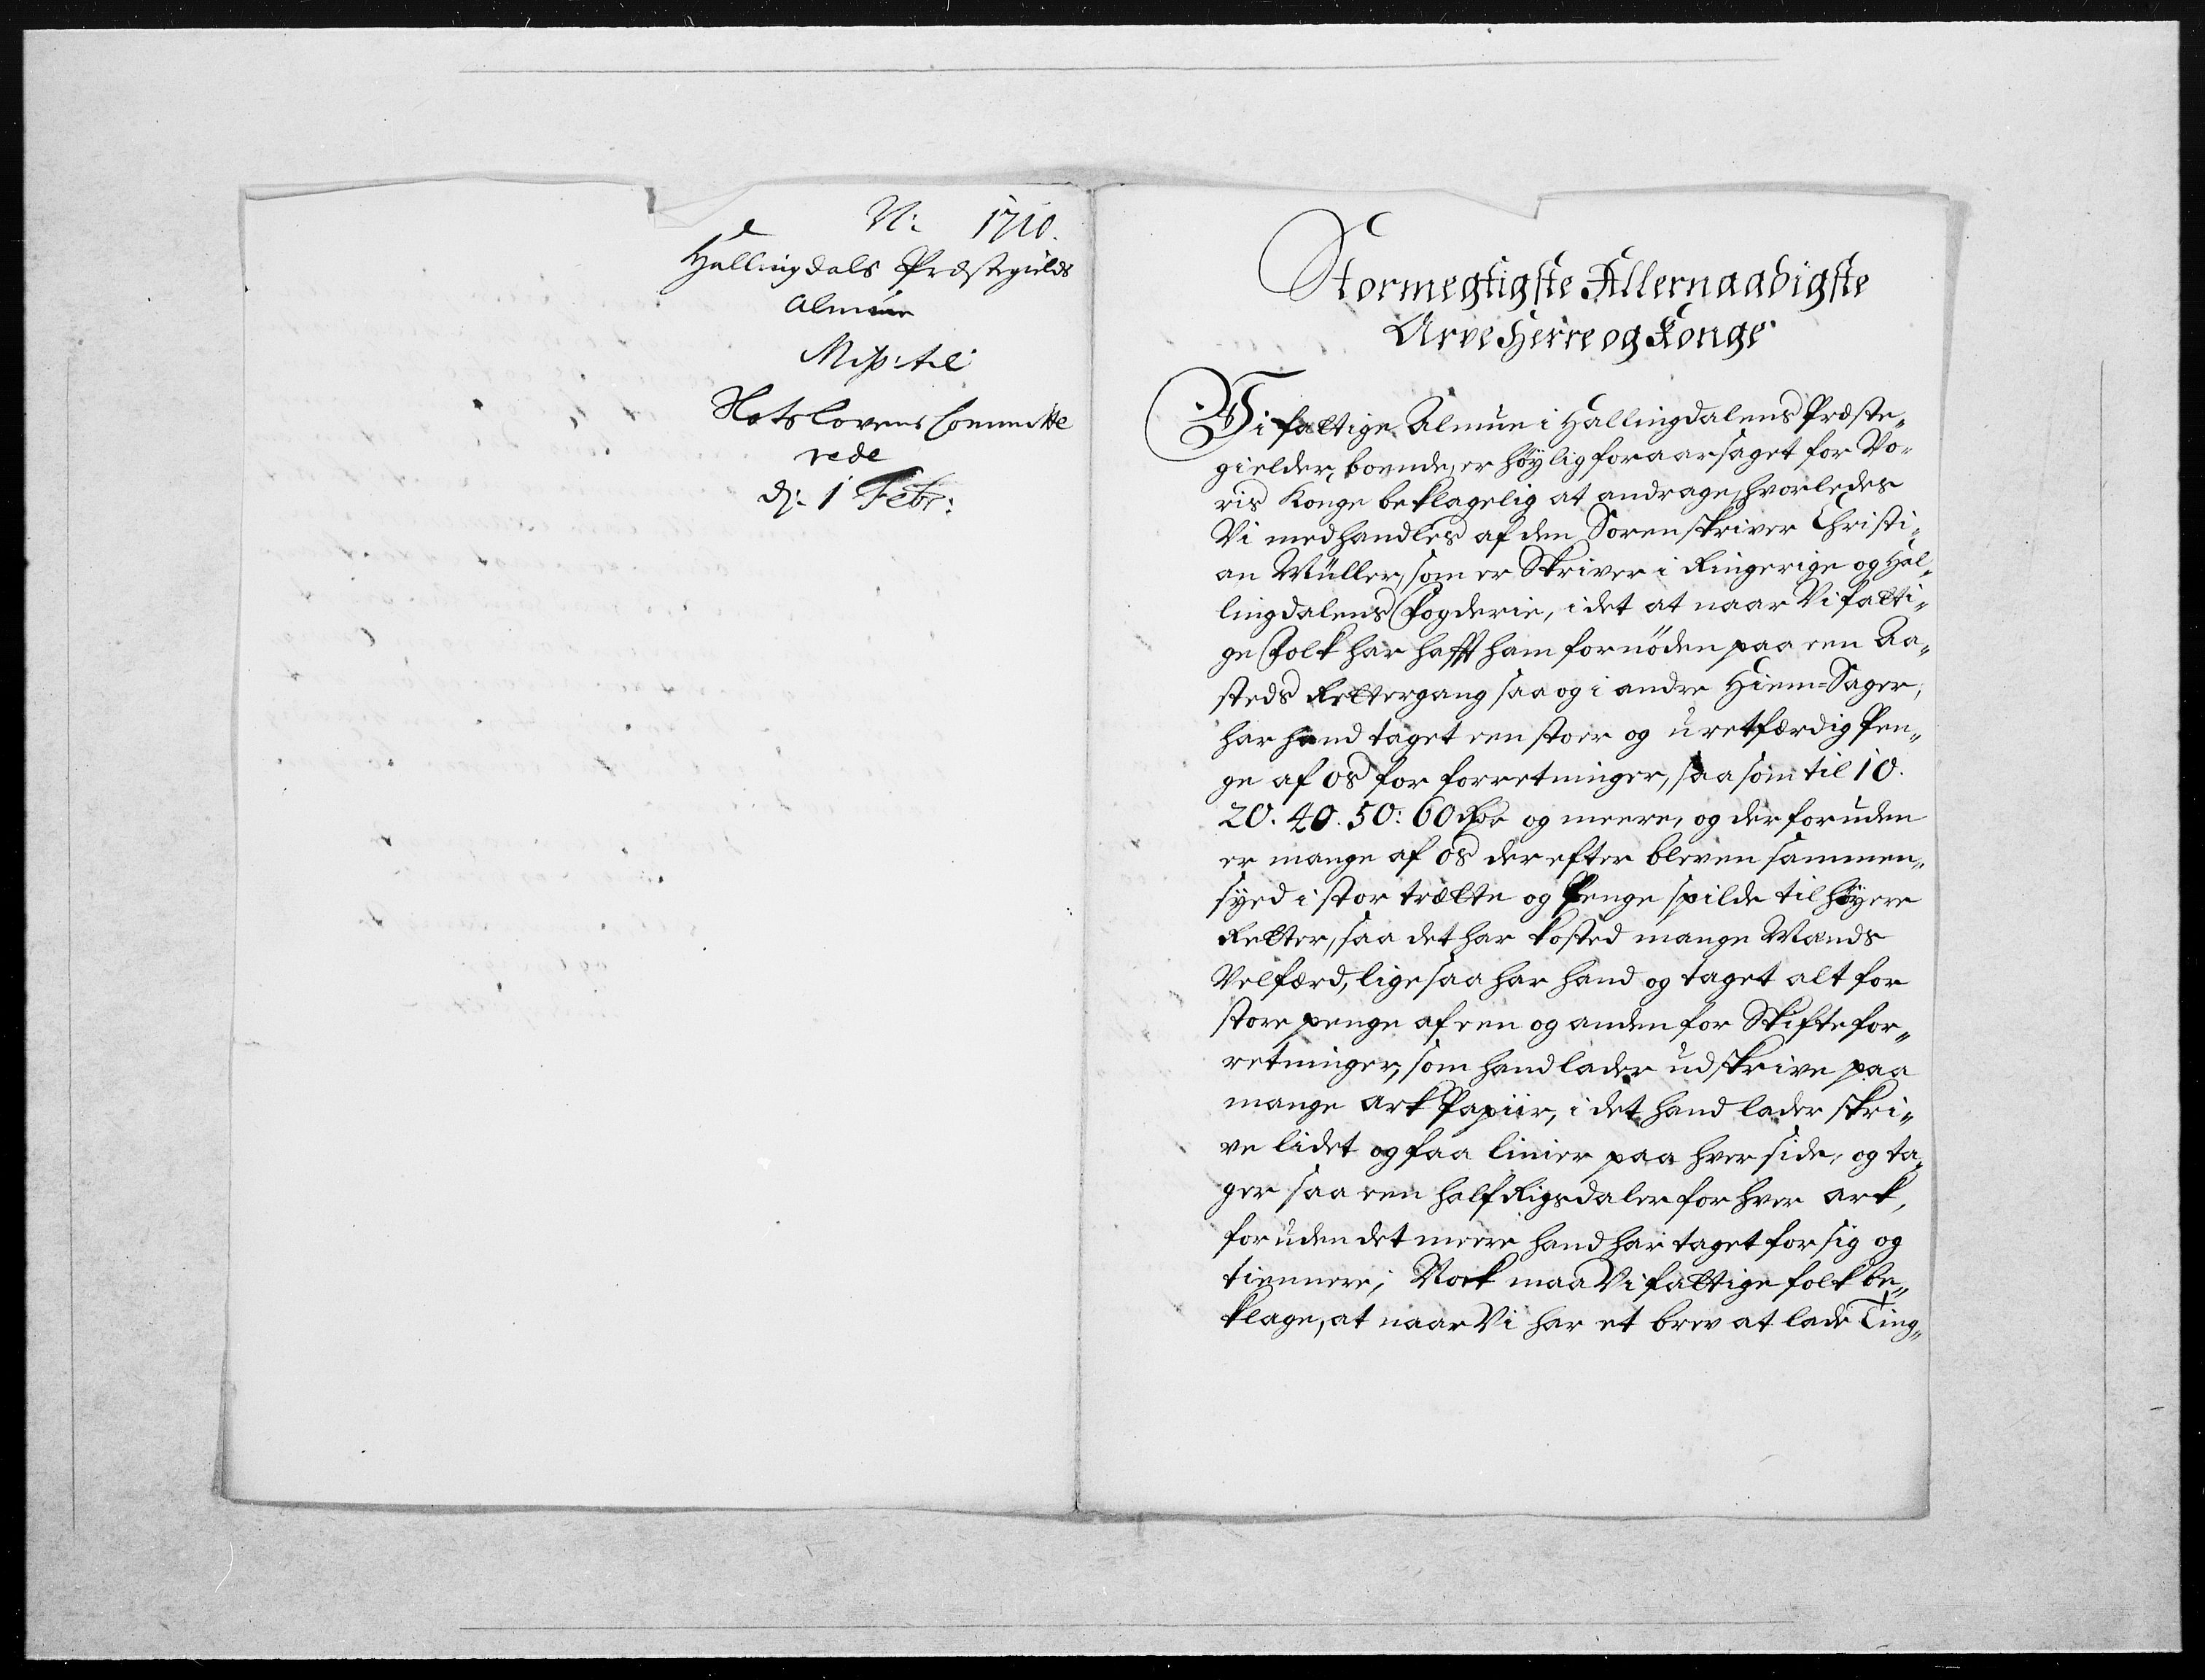 N: 1710.
Hallingdals Præstegields
Almue
Miss: til
Slots Lovens Committe
rede
d: 1 Febr:
Stormegtigste Allernaadigste
Arve Herre og Konge
Vi fattige Almue i Hallingdalens Præste„
gielder, boende, er höylig foraarsaget for Vo„
ris Konge beklagelig at andrage, hvorledes
Vi medhandles af den Sorenskriver Christi„
an Müller, som er Skriver i Ringerige og Hal„
lingdalens Fogderie, i det at naar Vi fatti„
ge Folk har hafft ham fornöden paa een Aa„
steds Rettergang saa og i andre Hiem-Sager,
har hand taget een stoer og uretfærdig Pen„
ge af os for forretninger, saasom til 10.
20. 40. 50: 60 Rdr og meere, og der foruden
er mange af os der efter bleven sammen„
syed i stor trætte og Penge spilde til höyere
Retter, saa det har kosted mange Mands
Velfærd, ligesaa har hand og taget alt for
store penge af een og anden for Skiftefor„
retninger, som hand lader udskrive paa
mange ark Papiir, i det hand lader skri„
ve lidet og faa linier paa hver side, og ta„
ger saa een half Rigsdaler for hver ark,
foruden det meere hand har taget for sig og
tiennere; Nok maa Vi fattige folk be„
klage, at naar Vi har et brev at lade Ting„